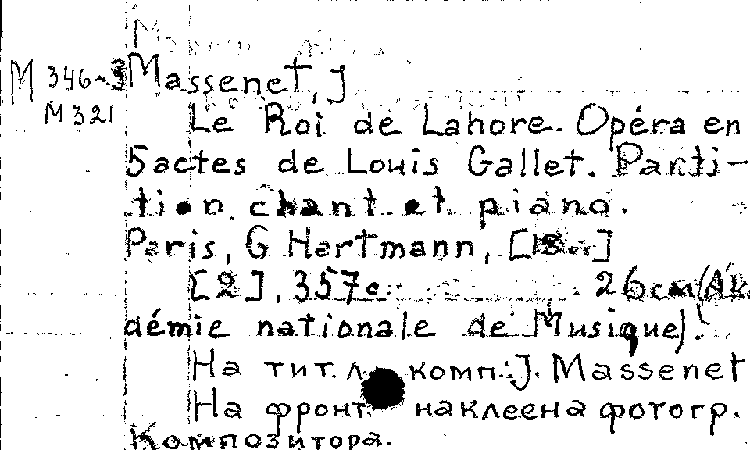 M 346-3 Massenet, J
M 321
Le Roi de Lahore. Opéra en
5 actes de Louis Gallet. Parti-
tion chant et piano.
Paris, G Hartmann,
[2], 357c. 26cm (Aka
démie nationale de Musique).
На тит. л. комп.: J. Massenet
На фронт. наклеена фотогр.
Композитора.